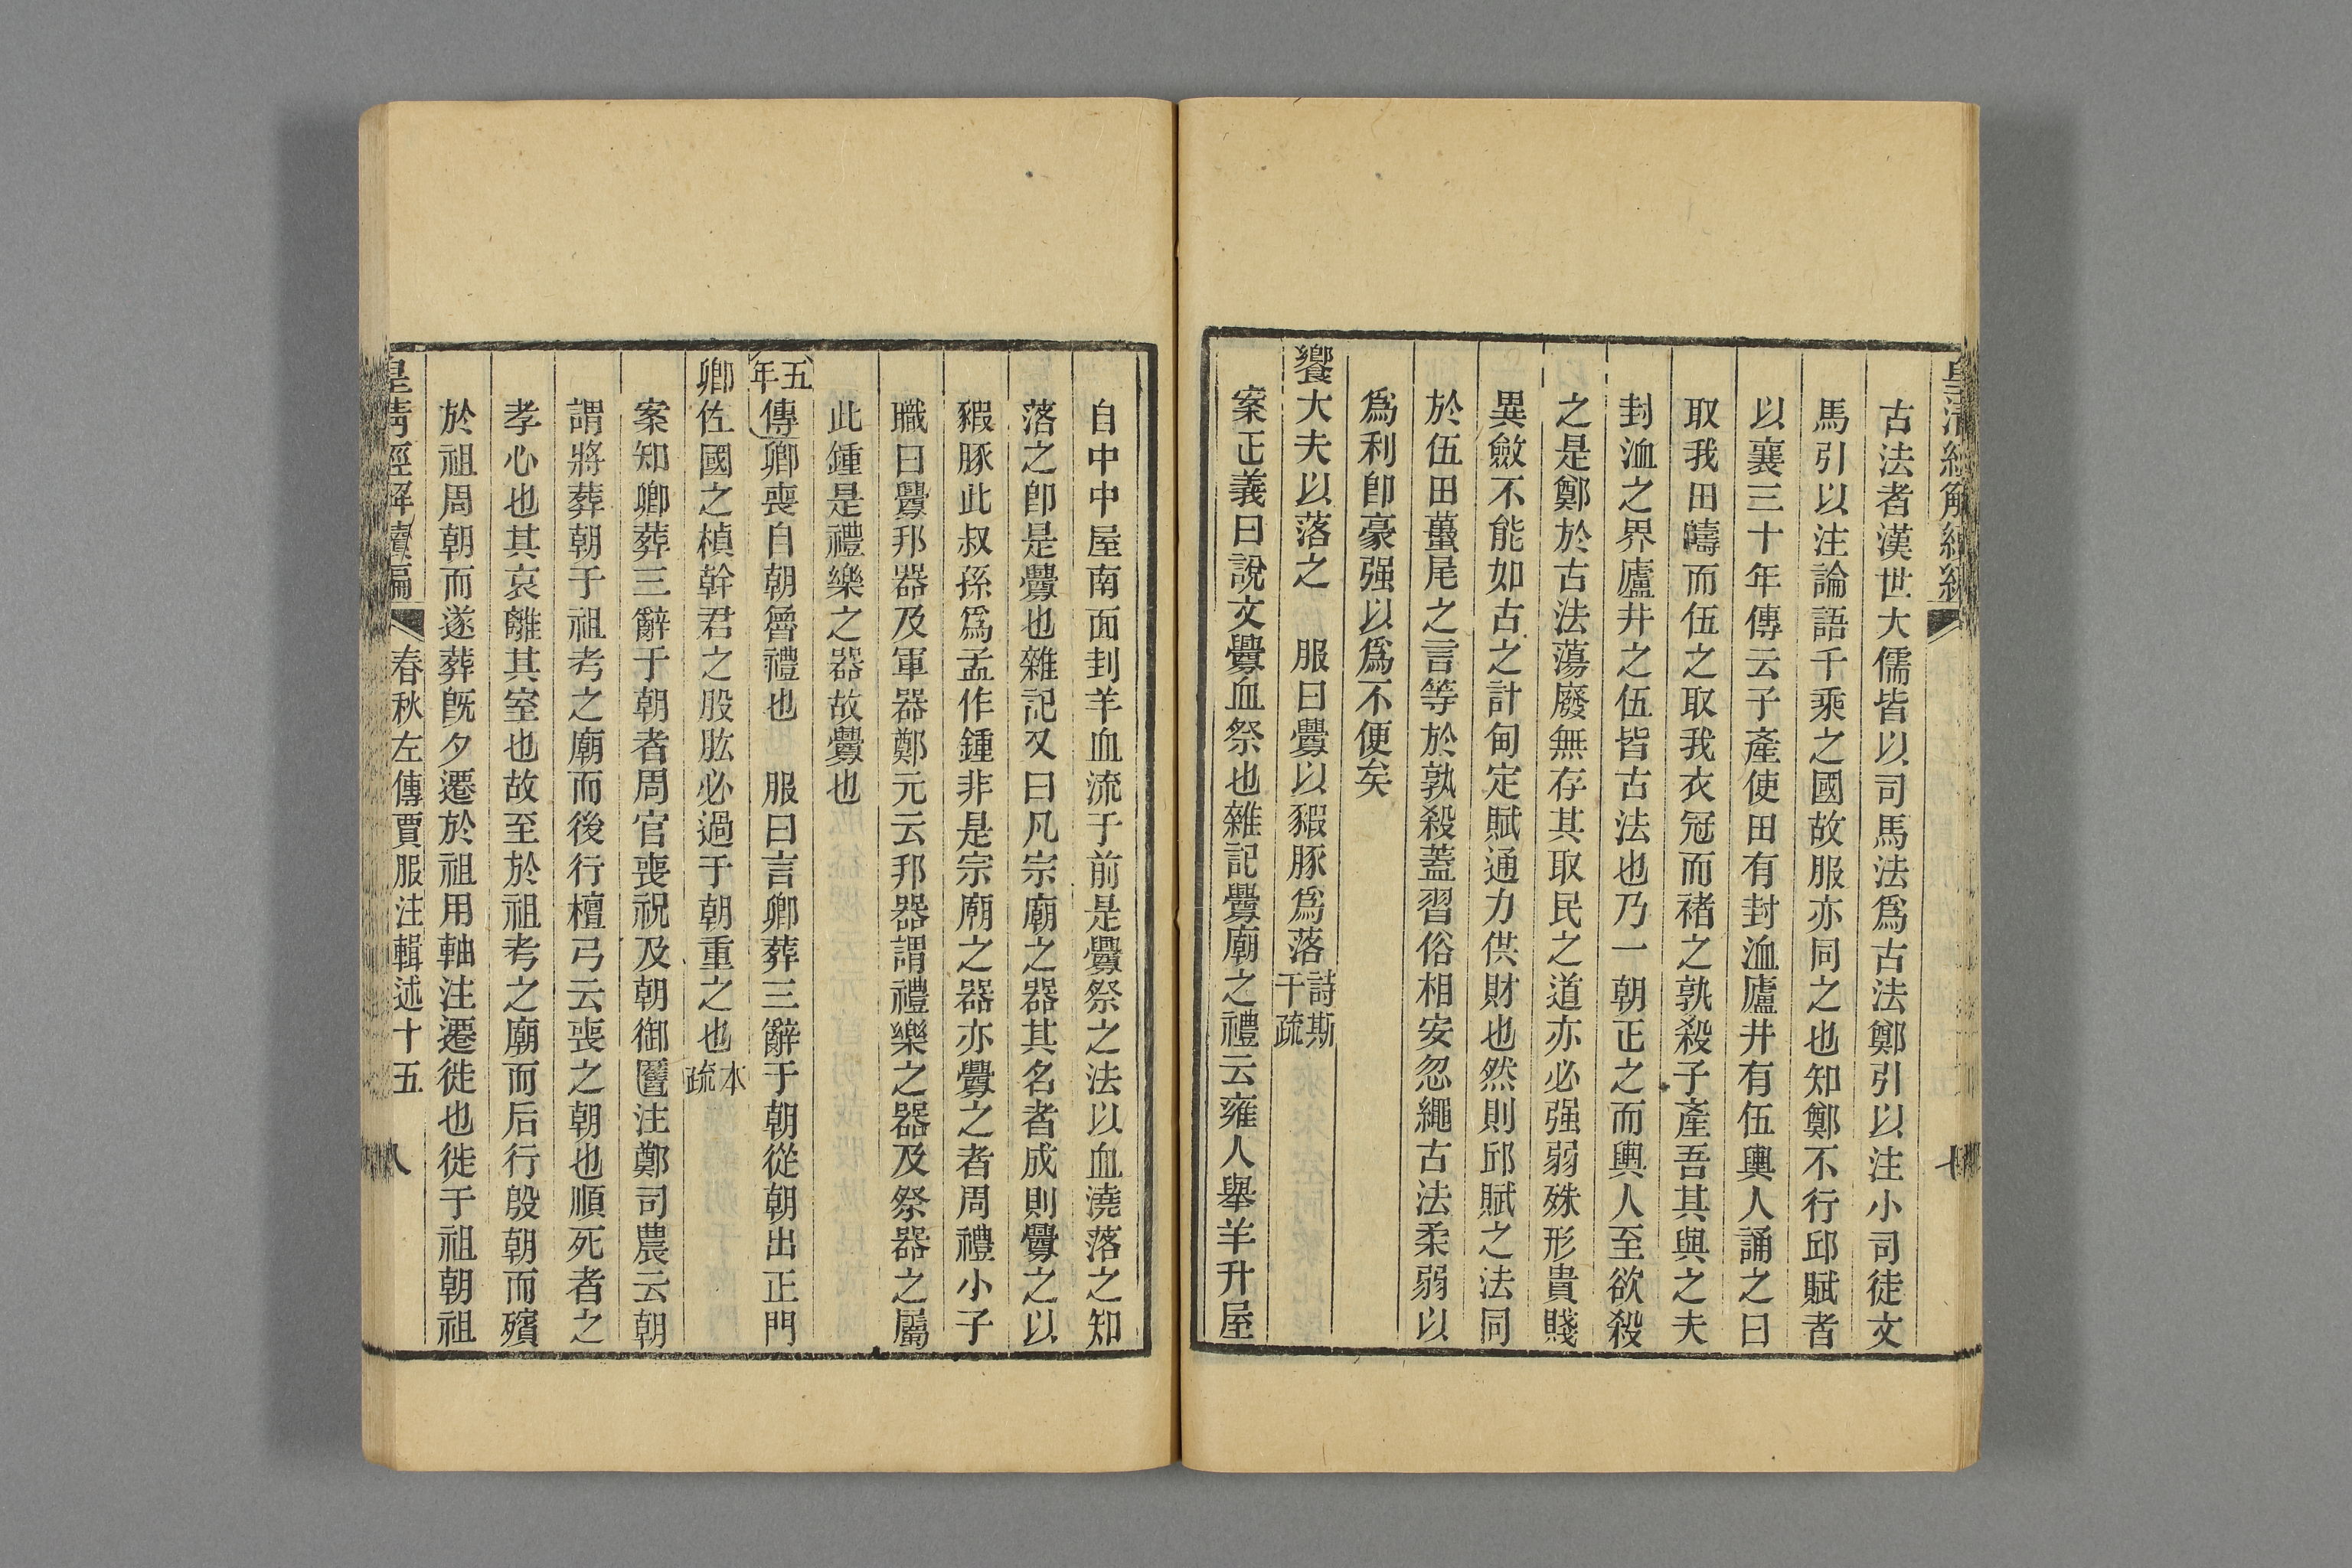 皇清經解續編
古法者漢世大儒皆以司馬法爲古法鄭引以注小司徒文
馬引以注論語千乘之國故服亦同之也知鄭不行邱賦者
以襄三十年傳云子產使田有封洫廬井有伍輿人誦之曰
取我田疇而伍之取我衣冠而褚之孰殺子產吾其與之夫
封洫之界廬井之伍皆古法也乃一朝正之而輿人至欲殺
之是鄭於古法蕩廢無存其取民之道亦必强弱殊形貴賤
異斂不能如古之計甸定賦通力供財也然則邱賦之法同
於伍田蠆尾之言等於孰殺蓋習俗相安忽繩古法柔弱以
爲利卽豪强以爲不便矣
饗大夫以落之 服曰釁以豭豚爲落詩斯干疏
案正義曰說文釁血祭也雜記釁廟之禮云雍人舉羊升屋
自中中屋南面刲羊血流于前是釁祭之法以血澆落之知
落之卽是釁也雜記又曰凡宗廟之器其名者成則釁之以
豭豚此叔孫爲孟作鍾非是宗廟之器亦釁之者周禮小子
職曰釁邦器及軍器鄭元云邦器謂禮樂之器及祭器之屬
此鍾是禮樂之器故釁也
五年傳卿喪自朝魯禮也 服曰言卿葬三辭于朝從朝出正門
卿佐國之楨幹君之股肱必過于朝重之也本疏
案知卿葬三辭于朝者周官喪祝及朝御匶注鄭司農云朝
謂將葬朝于祖考之廟而後行檀弓云喪之朝也順死者之
孝心也其哀離其室也故至於祖考之廟而后行殷朝而殯
於祖周朝而遂葬旣夕遷於祖用軸注遷徙也徙于祖朝祖
皇清經解續編 春秋左傳賈服注輯述十五 八